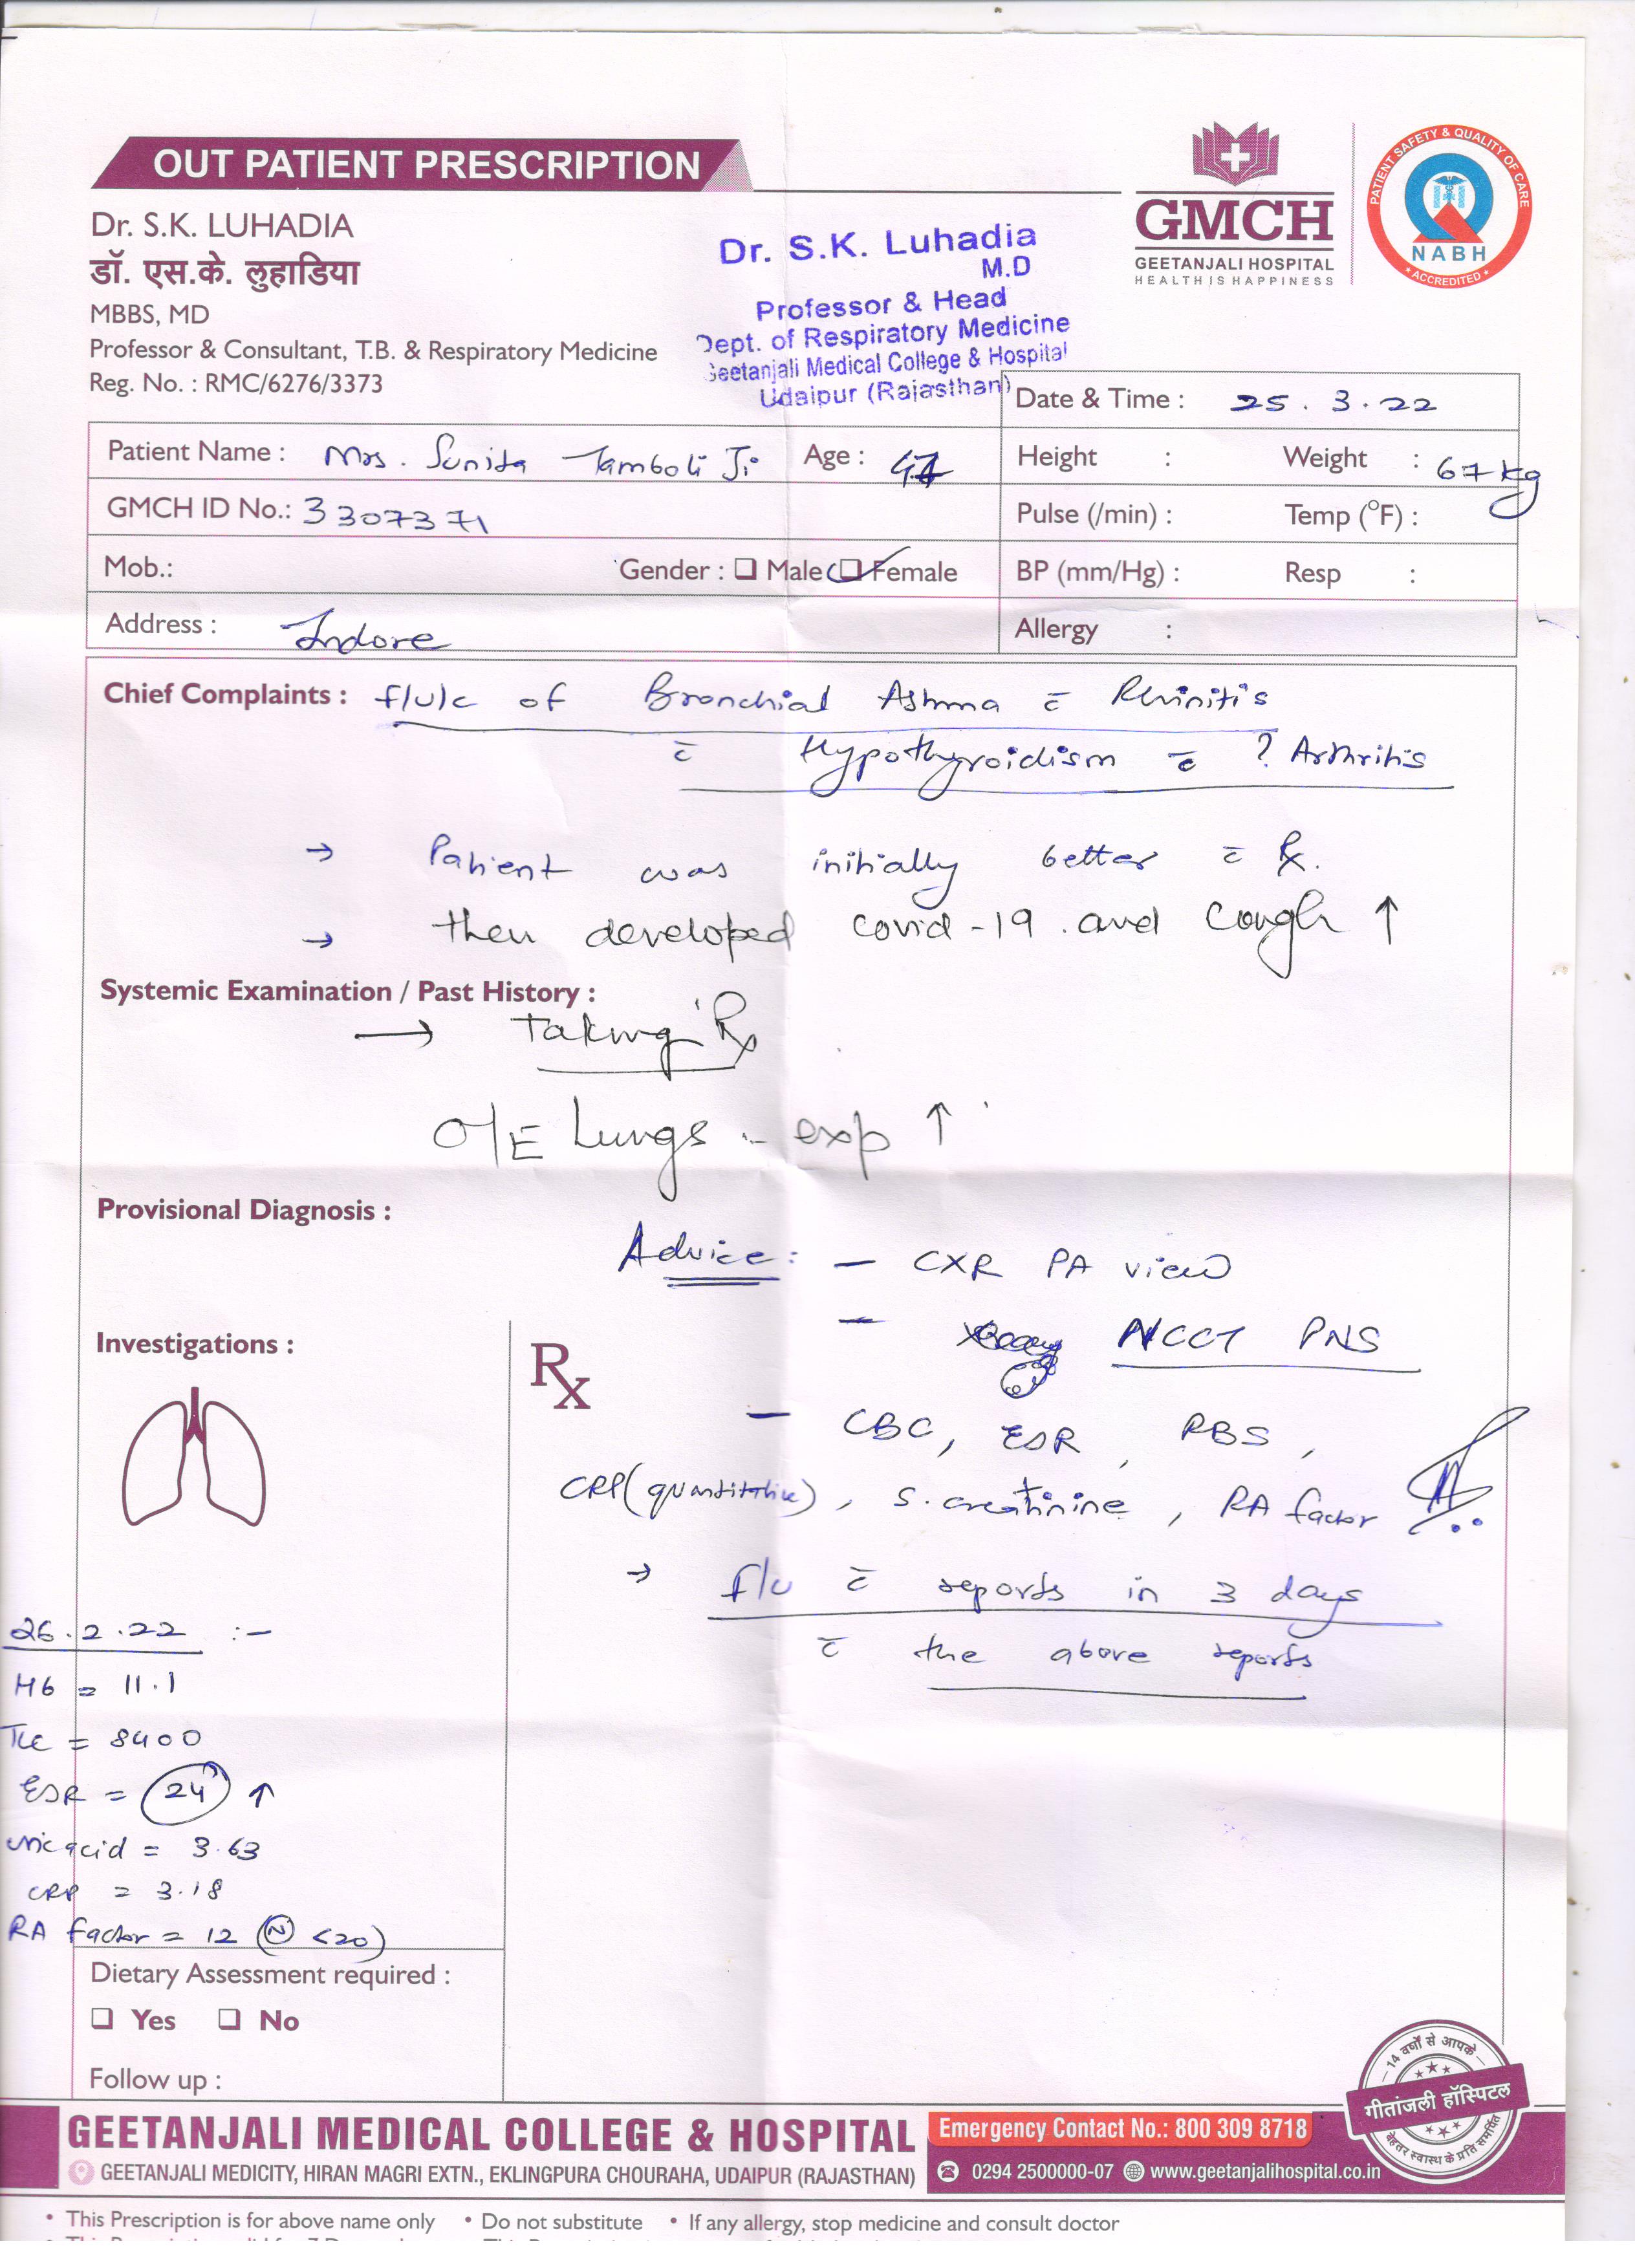 OUT PATIENT PRESCRIPTION
GMCH
GEETANJALI HOSPITAL
HEALTH IS HAPPINESS
PATIENT SAFETY & QUALITY OF CARE
NABH
ACCREDITED
Dr. S.K. LUHADIA
डॉ. एस.के. लुहाडिया
MBBS, MD
Professor & Consultant, T.B. & Respiratory Medicine
Reg. No. : RMC/6276/3373
Dr. S.K. Luhadia
M.D
Professor & Head
Dept. of Respiratory Medicine
Geetanjali Medical College & Hospital
Udaipur (Rajasthan)
Date & Time : 25.3.22
Patient Name : Mrs. Sunita Tamboli Ji Age : 47
Height : Weight : 67 kg
GMCH ID No.: 3307371
Pulse (/min) : Temp (°F) :
Mob.: Gender : ❑ Male ❑ Female
BP (mm/Hg) : Resp :
Address : Indore
Allergy :
Chief Complaints : f/u/c of Bronchial Asthma c̄ Rhinitis
c̄ Hypothyroidism c̄ ? Arthritis
→ Patient was initially better c̄ Rx.
→ then developed covid-19 and cough ↑
Systemic Examination / Past History :
→ Taking Rx
O/E Lungs - exp ↑
Provisional Diagnosis :
Advice: - CXR PA view
- NCCT PNS
Investigations :
Rx
- CBC, ESR, RBS,
CRP (quantitative), S. creatinine, RA factor
→ f/u c̄ reports in 3 days
c̄ the above reports
26.2.22 :-
Hb = 11.1
TLC = 8400
ESR = 24 ↑
uric acid = 3.63
CRP = 3.18
RA factor = 12 (N <20)
Dietary Assessment required :
❑ Yes ❑ No
Follow up :
14 वर्षों से आपके
गीतांजली हॉस्पिटल
बेहतर स्वास्थ के प्रति समर्पित
GEETANJALI MEDICAL COLLEGE & HOSPITAL
Emergency Contact No.: 800 309 8718
GEETANJALI MEDICITY, HIRAN MAGRI EXTN., EKLINGPURA CHOURAHA, UDAIPUR (RAJASTHAN)
0294 2500000-07 www.geetanjalihospital.co.in
• This Prescription is for above name only • Do not substitute • If any allergy, stop medicine and consult doctor